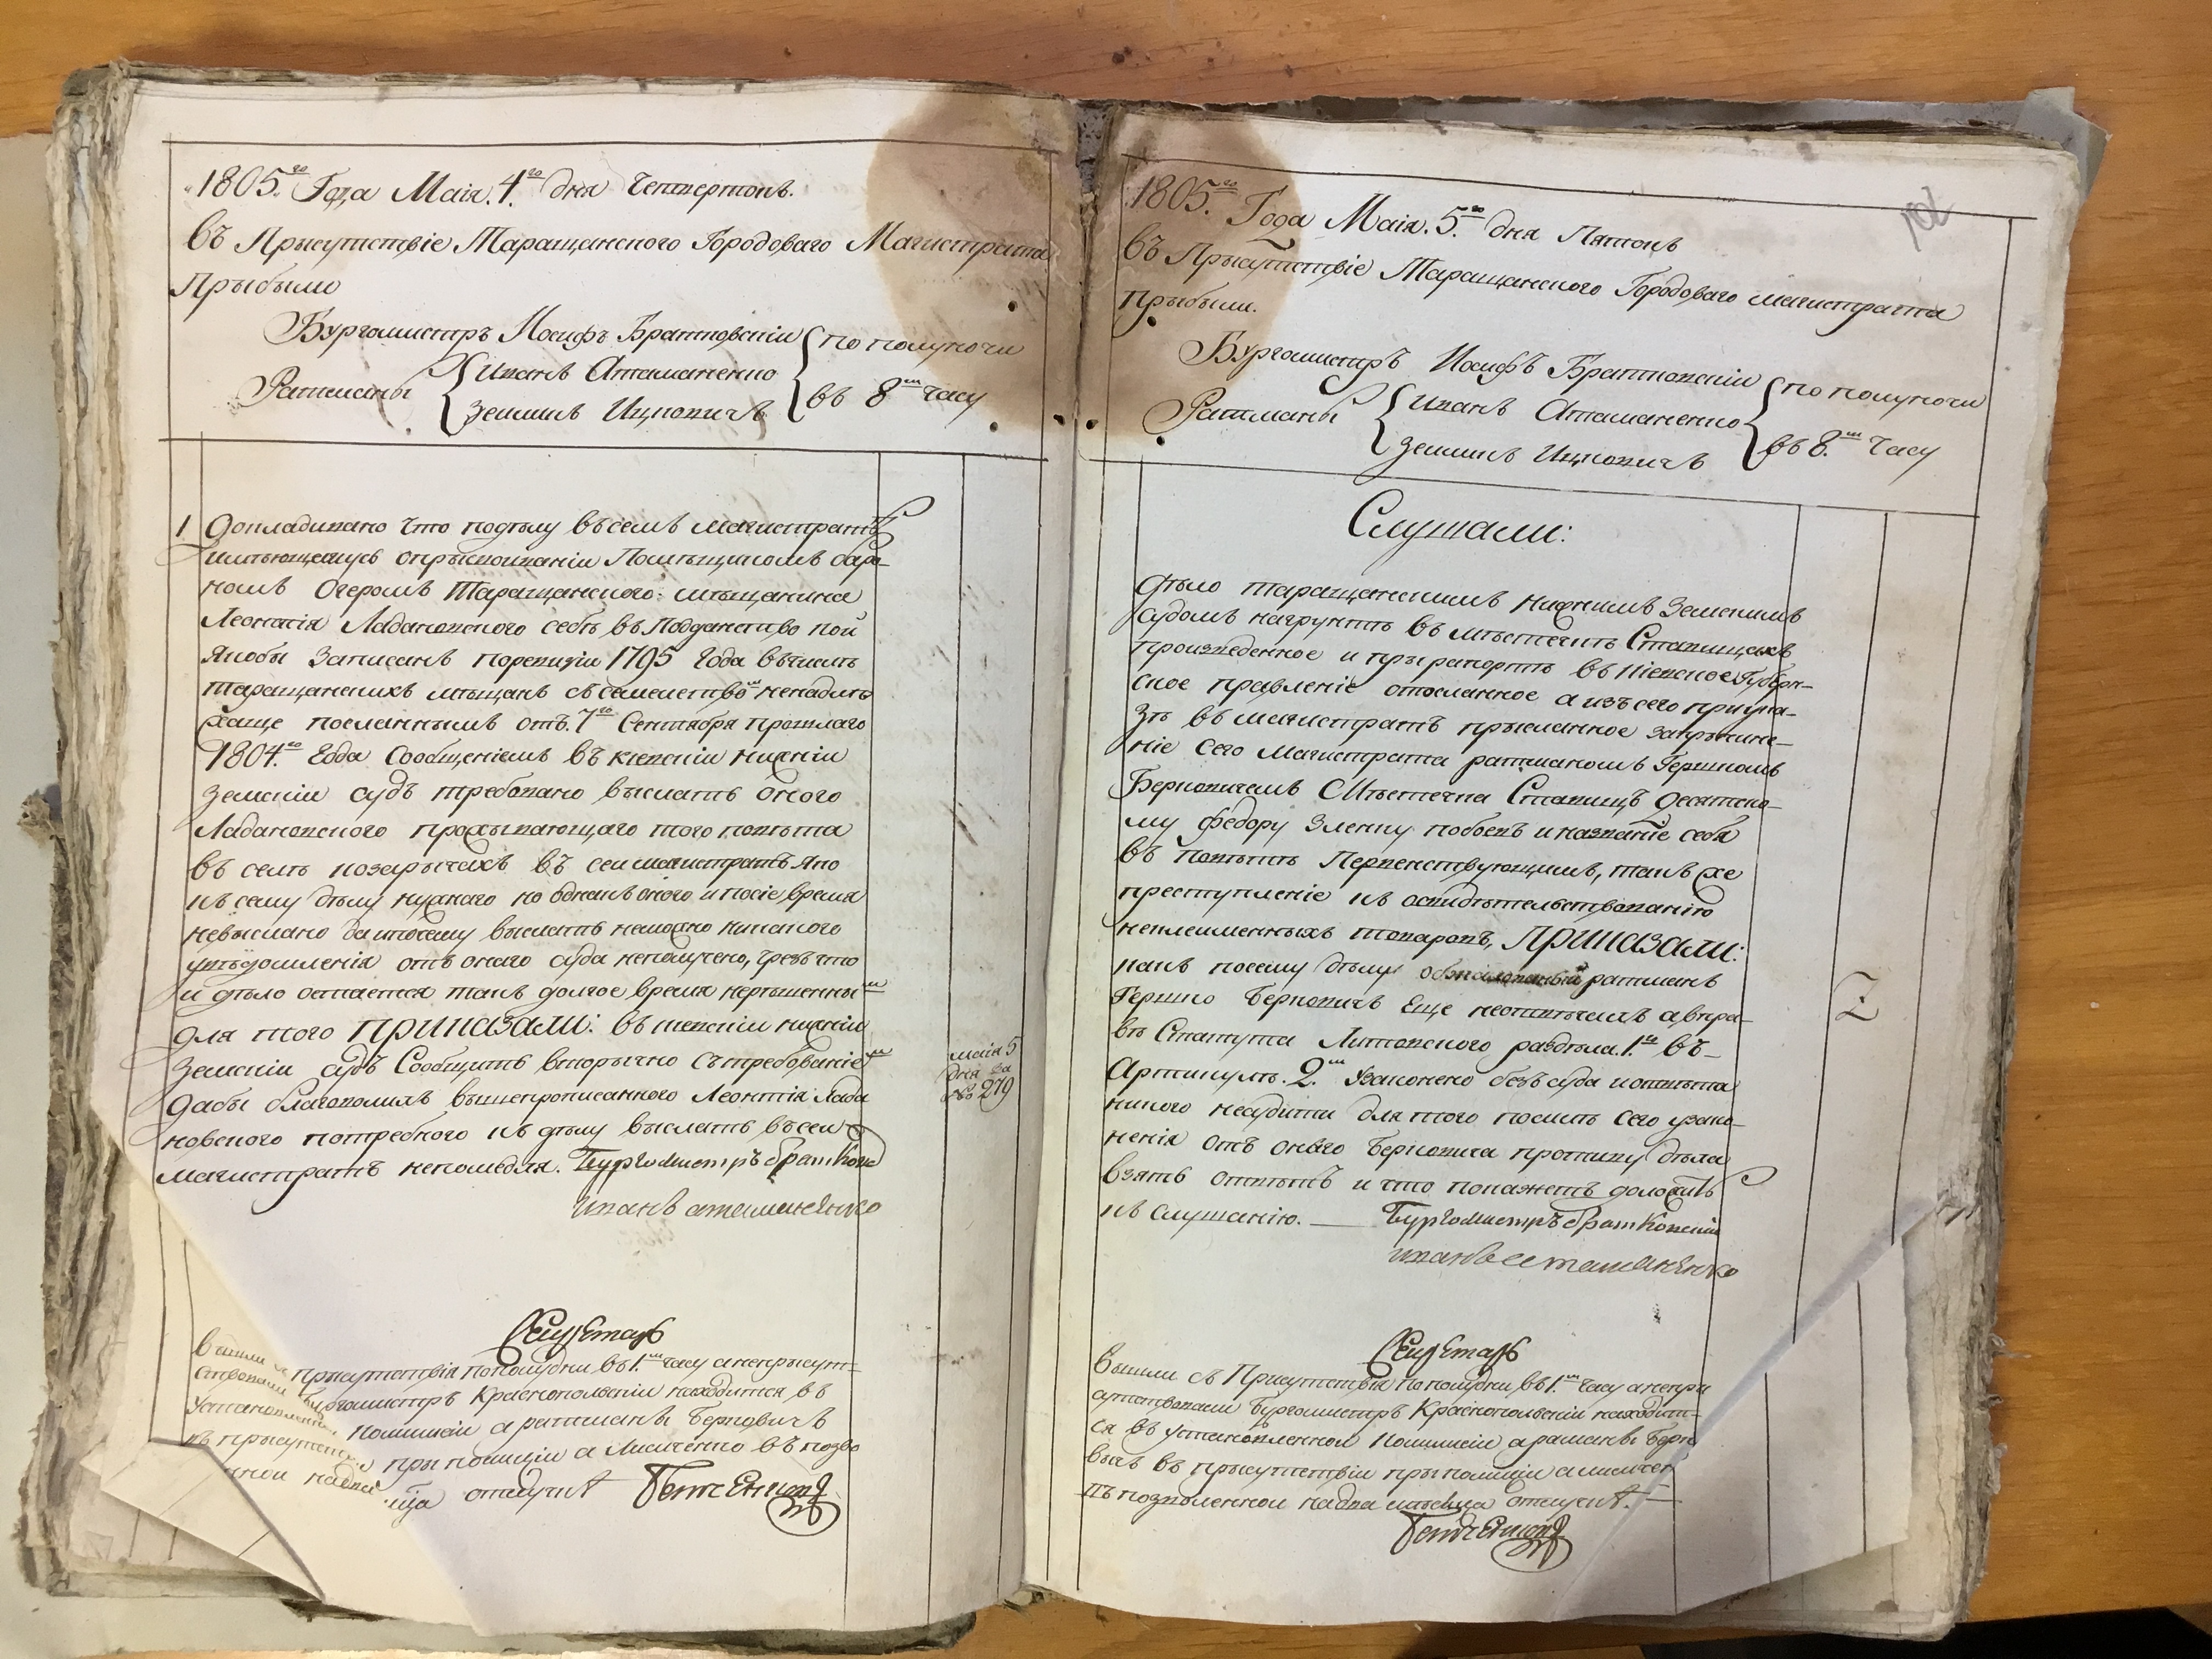 1805.го Года Маія. 4.го дня Четвертокъ.
въ Присутствіе Таращанского Городоваго Магистрата
Прыбыли
Бургомистръ Иосифъ Братковскій по полуночи
Ратманы Иванъ Атаманенко въ 8м часу
Зельманъ Ицковичъ
1 Докладывано что поделу въ семъ Магистратъ
имъющемусь Помъщикомъ баро-
номъ Таращанского мъщанина
Леонтія Ладановского себъ въ Подданство кой
якобы записанъ поревизіи 1795 Года въчислъ
таращанскихъ мъщанъ съ семействомъ
посланнымъ отъ 7го Сентября прошлаго
1804.го Года Сообщеніемъ въ кіевскій нижній
земскій судъ требовано выслать оного
Ладановского проживающаго того повъта
въ селъ въ сей магистратъ яко
къ сему дълу нужнаго но однакъ оного и посіе время
невыслано
увъдомленія отъ онаго суда неполучено, чрезъ что
и дъло остается такъ долгое время неръшеннымъ
для того приказали: въ кіевскій нижній
Земскій судъ Сообщить вторычно съ требованіемъ
дабы благоволилъ вышепрописанного Леонтія Лада
новского потребного къ дълу выслать въ сей
магистратъ непомедля. Бургомистръ братковс
иванъ атаманенко
маія 5
дня за
№ 279
Секретарь
Вышли съ присутствія пополудни въ 1.м часу а неприсут-
ствовали Бургомистръ Краснопольскій находится въ
Установленной Комисіи а ратманы Берковичъ
въ присутствіи при полиціи а Лисиченко въ позво
ленной на два мъсяца отлучкъ
1805.го Года Маія. 5.го дня Пятокъ
въ Присутствіе Таращанского Городоваго магистрата
Прыбыли.
Бургомистръ Иосифъ Братковскій по полуночи
Ратманы Иванъ Атаманенко въ 8.м часу
Зельманъ Ицковичъ
102
Слушали:
Дъло таращанскимъ нижнимъ земскимъ
судомъ нагрунтъ въ мъстечкъ Ставищахъ
произведенное и при рапортъ въ Кіевское Губерн-
ское правленіе отосланное а изъ сего прика-
зъ въ магистратъ присланное
ніе сего Магистрата ратманомъ Гершкомъ
Берковичемъ Мъстечка Ставищъ Десятско-
му Федору Зленку побоевъ и названіе себя
въ повътъ Первенствующимъ, такъ же
преступленіе къ освидътельствованію
неклейменныхъ товаровъ, Приказали:
какъ посему дълу ратманъ
Гершко Берковичъ Еще неотвъчалъ а впра-
въ Статута Литовского раздъла 1.го въ-
Артикулъ. 2.м Узаконено безъ суда и отвъта
никого несудити для того посилъ сего узако-
ненія отъ онаго Берковича противу дъла
взять отвътъ и что покажетъ доложить
къ слушанію. Бургомистръ братковскій
иванъ атаманенко
Секретарь
Вышли съ Присутствія пополудни въ 1.м часу а непри
сутствовали Бургомистръ Краснопольскій находит-
ся въ Установленной Комисіи а ратманы Берко
вичъ въ присутствіи при полиціи а лисичен
въ позволенной на два мъсяца отлучкъ.